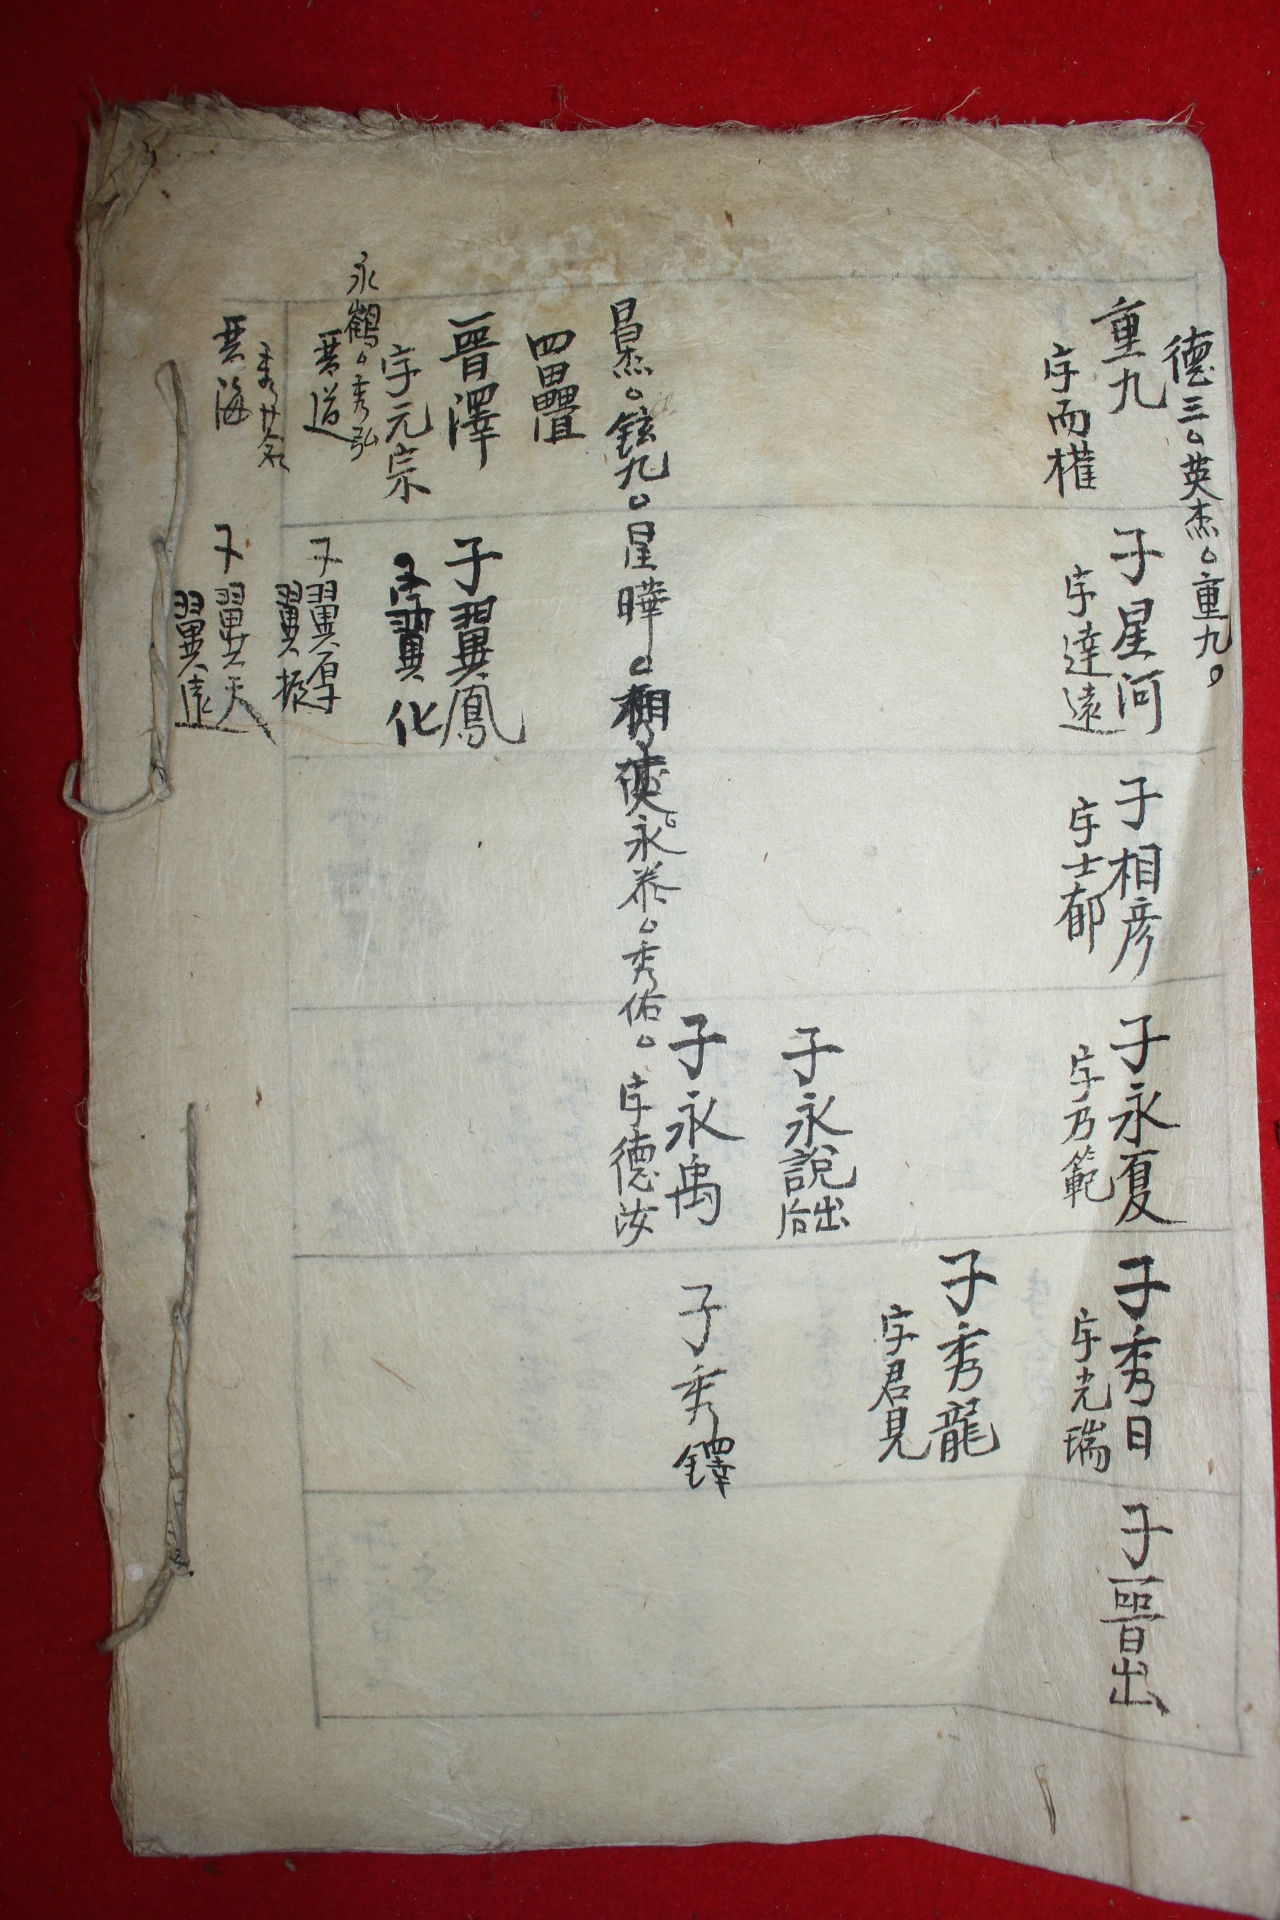 德三。英杰。重九。
重九
字而權
子星河
字達遠
子相彦
字士郁
子永夏
字乃範
子秀日
字光瑞
子晉出
子秀龍
字君見
子永說出后
子永禹
字德汝
子秀鐸
昌杰。鉉九。星曄。永泰。秀佑。
四疊
晉澤
字元宗
子翼鳳
子翼化
永鶴。秀弘
晉道
子翼厚
翼振
晉海
子翼天
翼遠